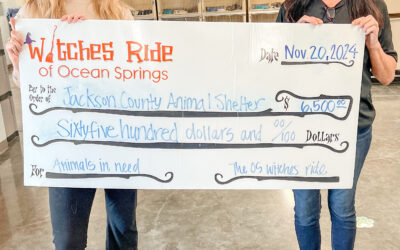 Witches Ride
of Ocean Springs
Date Nov 20, 2024
Pay to the
Order of Jackson County Animal Shelter $ 6,500.00
Sixtyfive hundred dollars and 00/100 Dollars
For Animals in need The OS witches ride